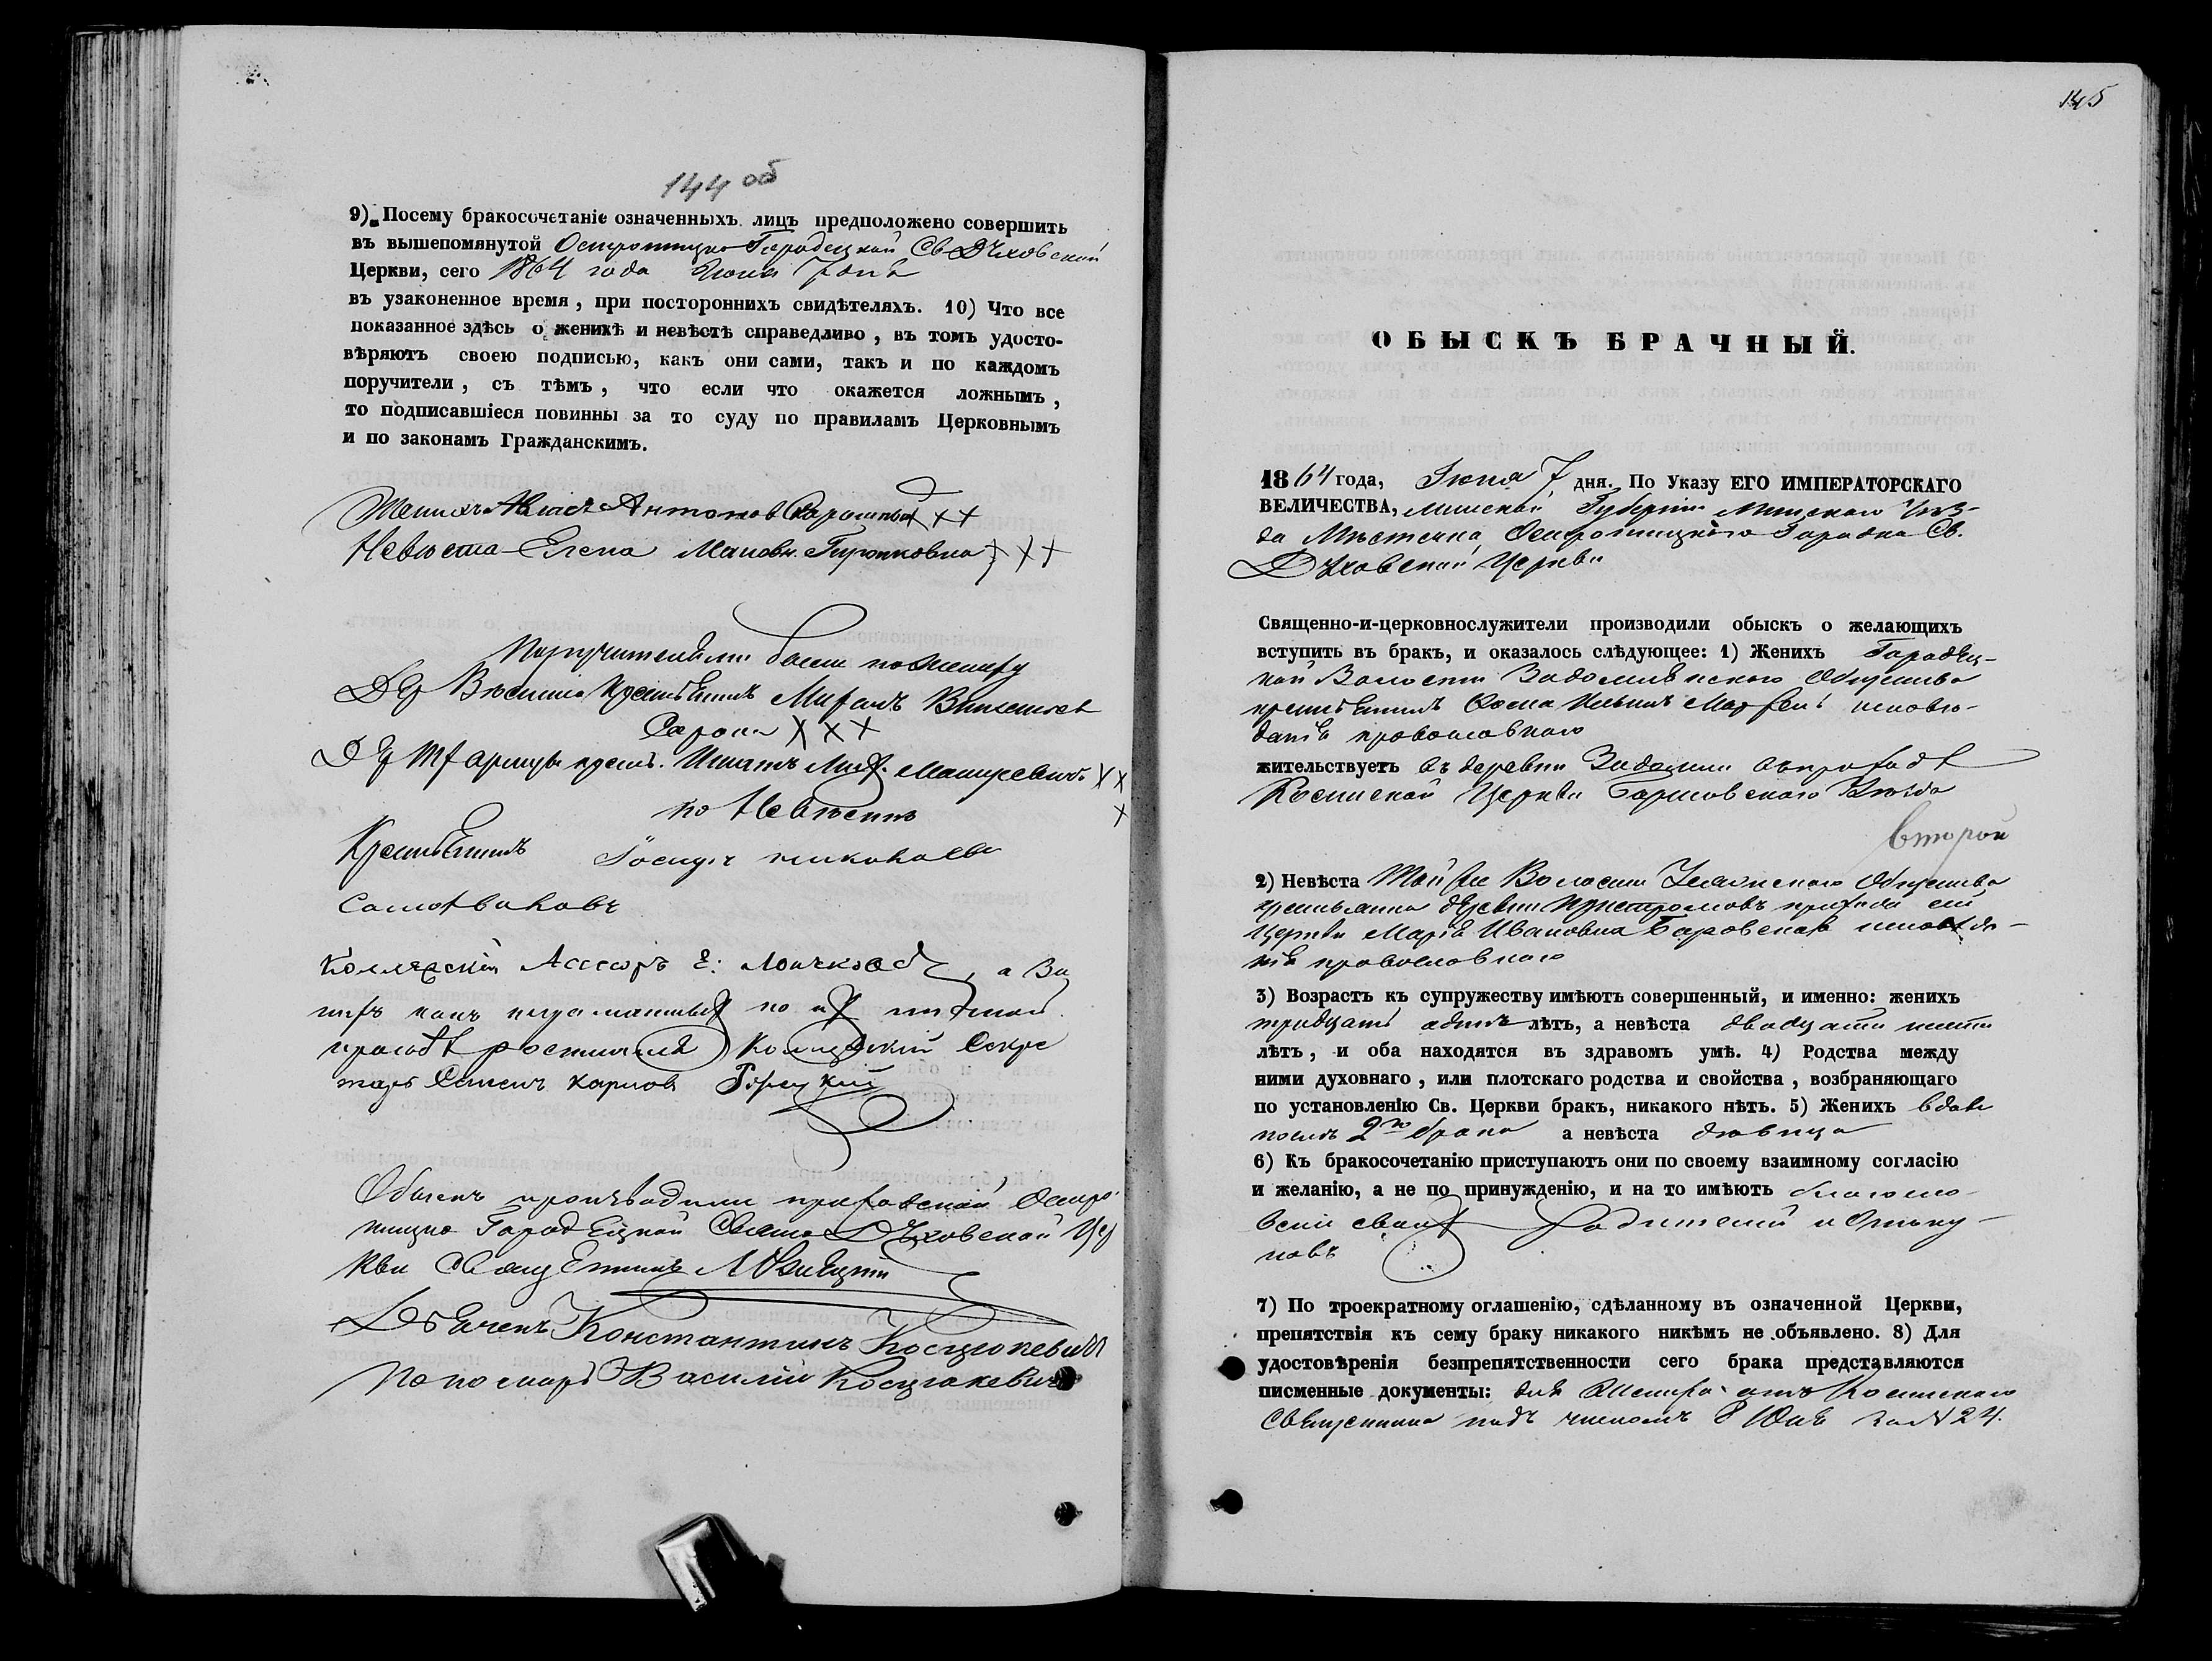 144 об
9) Посему бракосочетаніе означенныхъ лицъ предположено совершить
въ вышепомянутой Остротицко Городецкой Св Духовской
Церкви, сего 1864 года Іюня 7 дня
въ узаконенное время, при постороннихъ свидѣтеляхъ. 10) Что все
показанное здѣсь о женихѣ и невѣстѣ справедливо, въ томъ удосто-
вѣряютъ своею подписью, какъ они сами, такъ и по каждомъ
поручители, съ тѣмъ, что если что окажется ложнымъ,
то подписавшіеся повинны за то суду по правиламъ Церковнымъ
и по законамъ Гражданскимъ.
Женихъ Антонов ххх
Невѣста Елена ххх
Поручителями были по Жениху
Крестьянинъ
Сорока ххх
Игнатъ Мацкевичъ хх
по Невѣсте х
Крестьянинъ Іосифъ Николаевъ
Колежскій Асесоръ Е: а за
нихъ какъ неграмотныхъ по их личной
просьбѣ росписался Колежский Секре
тарь Семенъ Карлов Горецкій
Обыскъ производили приходской Остро
тицко Городецкой Свято Духовской Цер
кви Священникъ
Дьячекъ Константинъ Косцюкевичъ
Пономарь Василій Косцюкевичъ
145
ОБЫСКЪ БРАЧНЫЙ.
1864 года, Іюня 7 дня. По Указу ЕГО ИМПЕРАТОРСКАГО
ВЕЛИЧЕСТВА, Минской Губерніи Минскаго Уѣз-
да Мѣстечка Остротицкаго Городка Св.
Духовской Церкви
Священно-и-церковнослужители производили обыскъ о желающихъ
вступить въ бракъ, и оказалось слѣдующее: 1) Женихъ Городец-
кой Волости Общества
крестьянинъ Фома Ильинъ исповѣ-
данія православнаго
жительствуетъ въ деревни въ приходѣ
Церкви Борисовскаго Уѣзда
второй
2) Невѣста Той же Волости Общества
крестьянка деревни приходу сей
Церкви Марія Ивановна Боровская исповѣда-
нія православнаго
3) Возрастъ къ супружеству имѣютъ совершенный, и именно: женихъ
тридцать одинъ лѣтъ, а невѣста двадцати шести
лѣтъ, и оба находятся въ здравомъ умѣ. 4) Родства между
ними духовнаго, или плотскаго родства и свойства, возбраняющаго
по установленію Св. Церкви бракъ, никакого нѣтъ. 5) Женихъ вдов
послѣ 2го брака а невѣста дѣвица
6) Къ бракосочетанію приступаютъ они по своему взаимному согласію
и желанію, а не по принужденію, и на то имѣютъ благосло-
веніе своих родителей и опеку-
новъ
7) По троекратному оглашенію, сдѣланному въ означенной Церкви,
препятствія къ сему браку никакого никѣмъ не объявлено. 8) Для
удостовѣренія безпрепятственности сего брака представляются
писменные документы: для Жениха отъ
Священника подъ числомъ 8 за N 24.